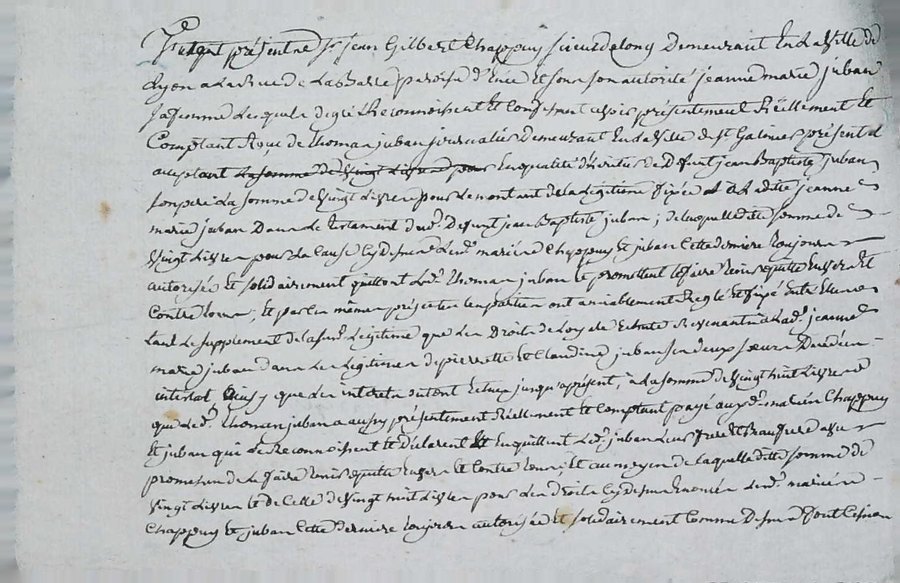 Furent présent Sr Jean Gilbert Chappuy sieur delong Demeurant En La Ville de
Lyon a La Rue de La Barre paroisse d'Enée Et sous son autorité jeanne marie juban
sa femme Lesquels de gré Reconnoissent Et Confessent avoir présentement Réellement Et
Comptant Reçu de thomas juban journalier Demeurant En La Ville de St Galmier présent Et
acceptant La somme de Vingt Livres pour En qualité d'héritier de Defunt jean Baptiste juban
son pere La somme de Vingt Livres pour Le montant de La Légitime fixée a Laditte jeanne
marie juban Dans Le testament dud. Defunt jean Baptiste juban; de laquelle ditte somme de
Vingt Livres pour La Cause Cy dessus Lesd. mariés Chappuy Et juban Cette derniere toujours
autorisée Et solidairement quittent Led. thomas juban Et promettent Le faire tenir quitte Envers Et
Contre tous; Et par Ces mêmes présentes Les parties ont amiablement Reglé Et fixé Entre Elles
tant Le supplement de la susd. Légitime que Les Droits de Revenant a Lad. jeanne
marie juban dans Les Légitimes de pierrette Et Claudine juban ses deux sœurs Decedées
intestat Ainsy que Les interets du tout Echus jusqu'a présent, a La somme de Vingt huit Livres
que Led. thomas juban a aussy présentement Réellement Et Comptant payé auxd. mariés Chappuy
Et juban qui Le Reconnoissent Et Déclarent Et En quittent Led. juban Leur frere Et Beaufrere avec
promesse de Le faire tenir quitte Envers Et Contre tous; Et au moyen de laquelle ditte somme de
Vingt Livres Et de Celle de Vingt huit Livres pour Les Droits Cy dessus Enoncés Lesd. mariés
Chappuy Et juban Cette derniere toujours autorisée Et solidairement Comme Dessus font Cession